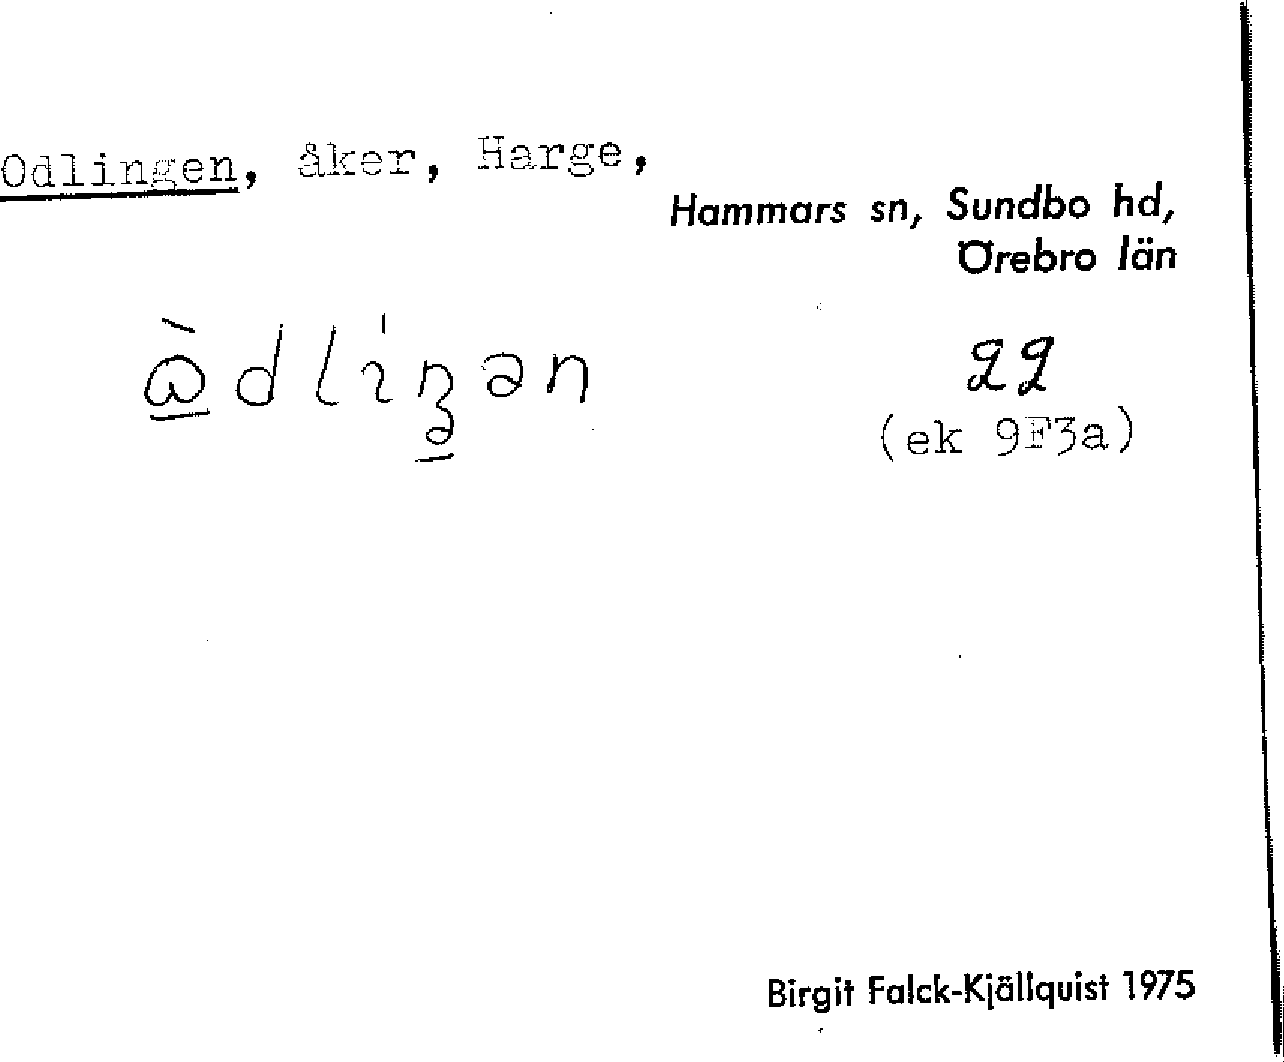 Odlingen, åker, Harge,
Hammars sn, Sundbo hd,
Örebro län
22
(ek 9F3a)
Birgit Falck-Kjällquist 1975